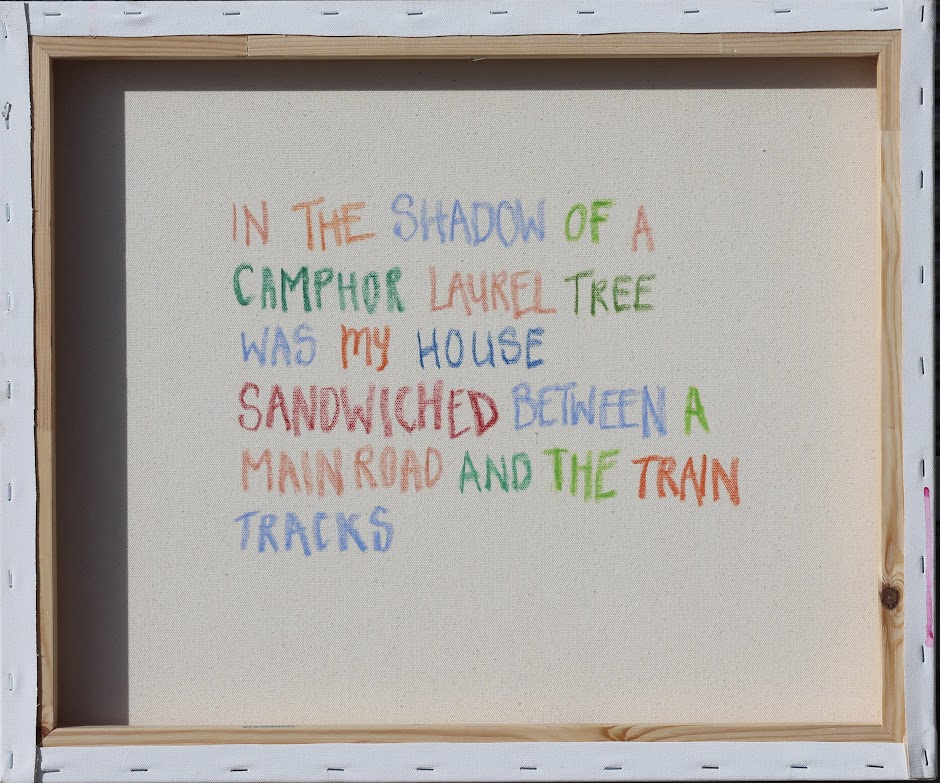 IN THE SHADOW OF A
CAMPHOR LAUREL TREE
WAS MY HOUSE
SANDWICHED BETWEEN A
MAIN ROAD AND THE TRAIN
TRACKS